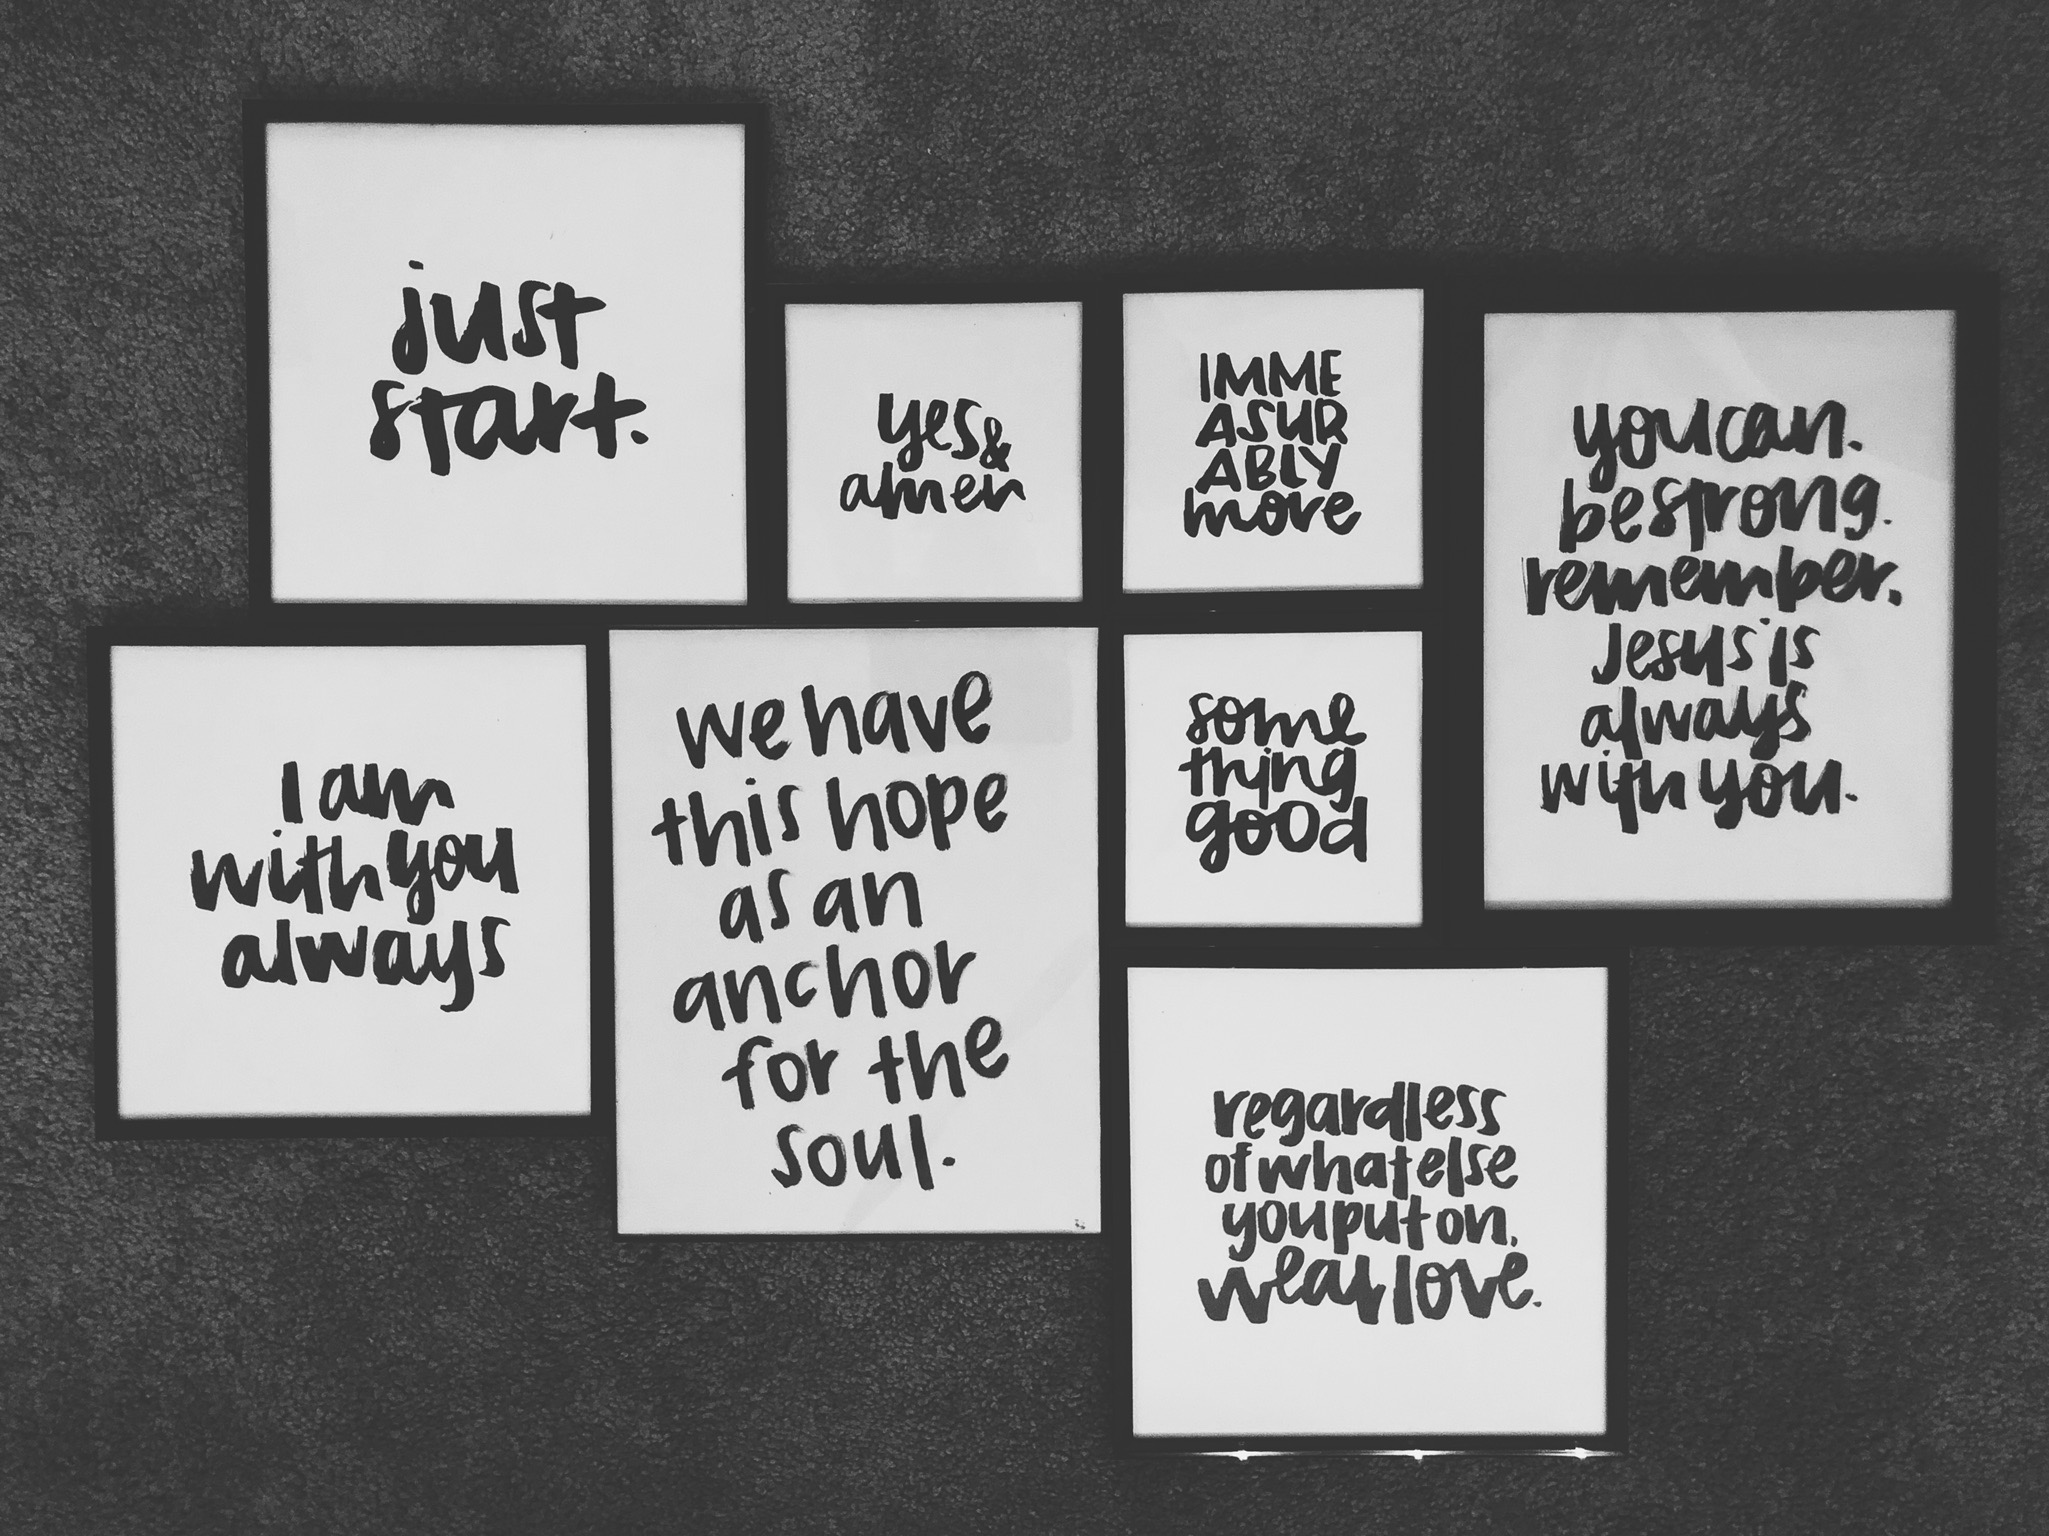 just
start.
yes&
amen
IMME
ASUR
ABLY
more
you can.
be strong.
remember,
Jesus is
always
with you.
I am
with you
always
we have
this hope
as an
anchor
for the
soul.
some
thing
good
regardless
of what else
you put on,
wear love.